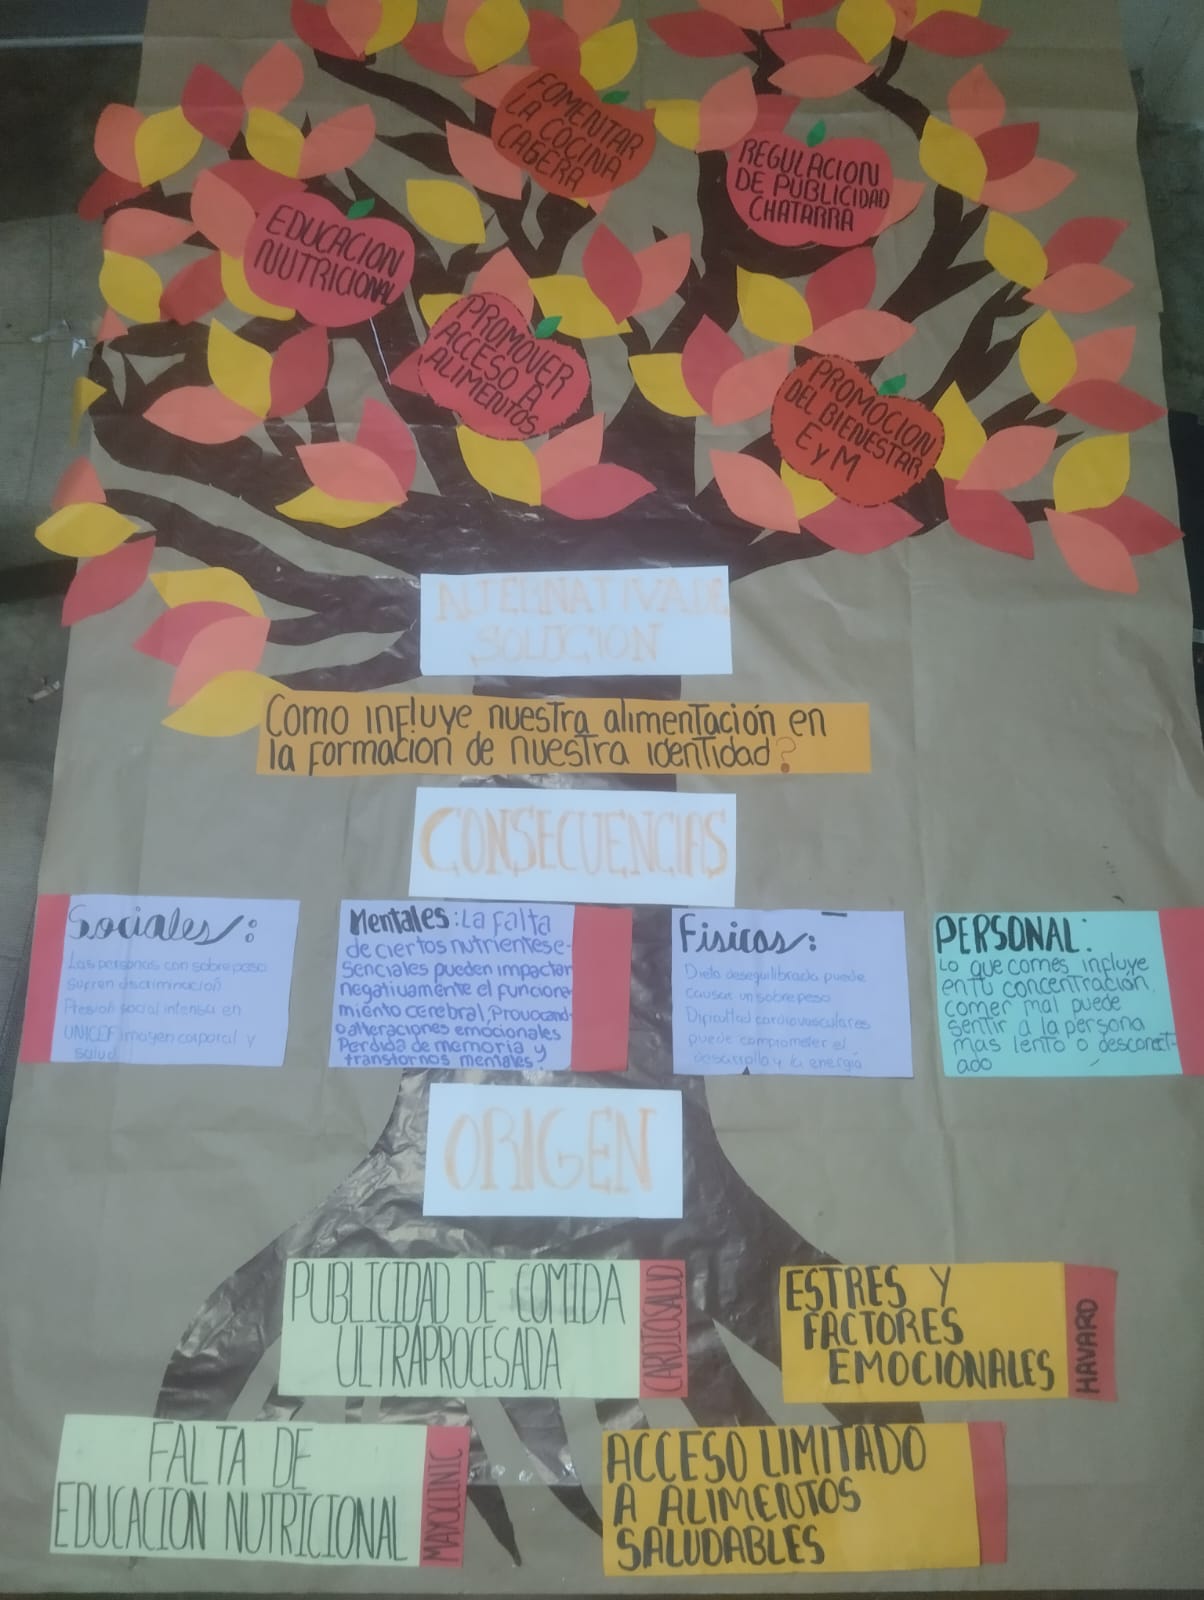 FOMENTAR
LA COCINA
CAGERA
REGULACION
DE PUBLICIDAD
CHATARRA
EDUCACION
NUTRICIONAL
PROMOVER
ACCESO A
ALIMENTOS
PROMOCION
DEL BIENESTAR
E y M
ALTERNATIVA DE
SOLUCION
Como influye nuestra alimentación en
la formacion de nuestra identidad?
CONSECUENCIAS
Sociales:
Las personas con sobrepeso
sufren discriminación
Presion social intensa en
UNICEF imagen corporal y
salud
Mentales: La falta
de ciertos nutrientes e-
senciales pueden impactar
negativamente el funciona-
miento cerebral, provocand-
o alteraciones emocionales
Perdida de memoria y
transtornos mentales.
Fisicas:
Dieta desequilibrada puede
causar un sobrepeso
cardiovasculares
puede comprometer el
desarrollo y la energía
PERSONAL:
Lo que comes influye
en tu concentración,
comer mal puede
sentir a la persona
mas lento o desconect-
ado
ORIGEN
PUBLICIDAD DE COMIDA
ULTRAPROCESADA
CARDIOSALUD
ESTRES Y
FACTORES
EMOCIONALES
HAVARD
FALTA DE
EDUCACION NUTRICIONAL
MAYOCLINIC
ACCESO LIMITADO
A ALIMENTOS
SALUDABLES